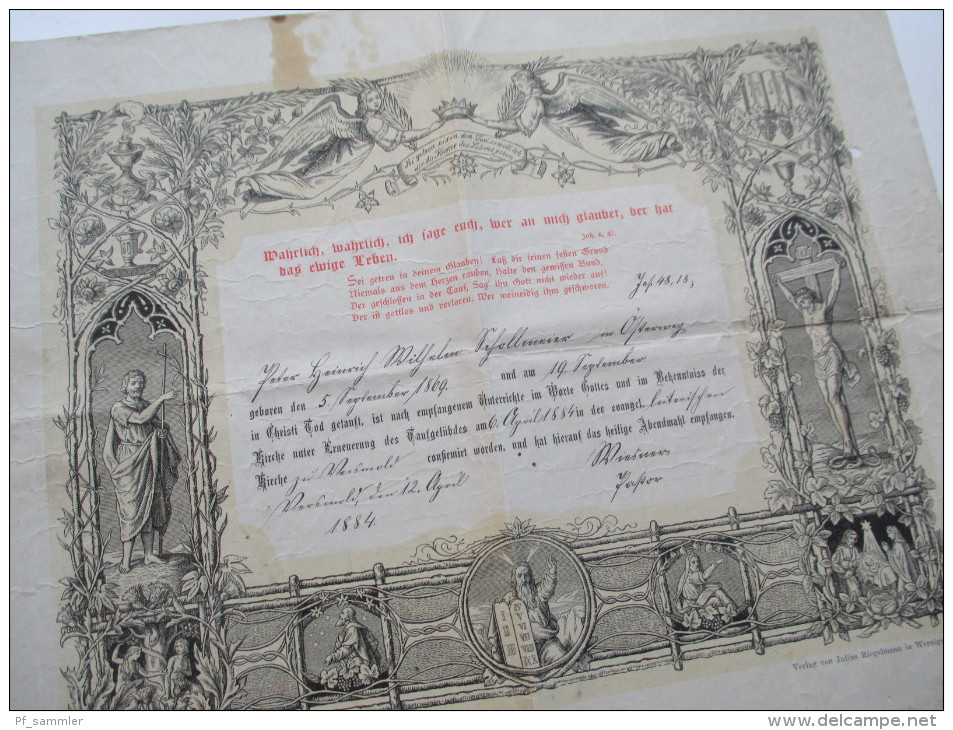 Sei getreu bis an den Tod, so will ich
dir die Krone des Lebens geben
Wahrlich, wahrlich, ich sage euch, wer an mich glaubet, der hat
das ewige Leben.
Joh. 6, 47.
Sei getreu in deinem Glauben! Laß dir seinen festen Grund
Niemals aus dem Herzen rauben, Halte den gewissen Bund,
Der geschlossen in der Tauf, Sag' ihn Gott nicht wieder auf!
Der ist gottlos und verloren, Wer meineidig ihm geschworen.
Jes. 48, 18,
Peter Heinrich Wilhelm Schollmeier in Österweg
geboren den 5. September 1869. und am 19. September
in Christi Tod getauft, ist nach empfangenem Unterrichte im Worte Gottes und im Bekenntniss der
Kirche unter Erneuerung des Taufgelübdes am 6. April 1884 in der evangel. luterischen
Kirche zu Versmold confirmirt worden, und hat hierauf das heilige Abendmahl empfangen.
Versmold, den 12. April
1884.
Wiesner
Pastor
Verlag von Julius Riegelmann in
Pf_sammler
delcampe.net